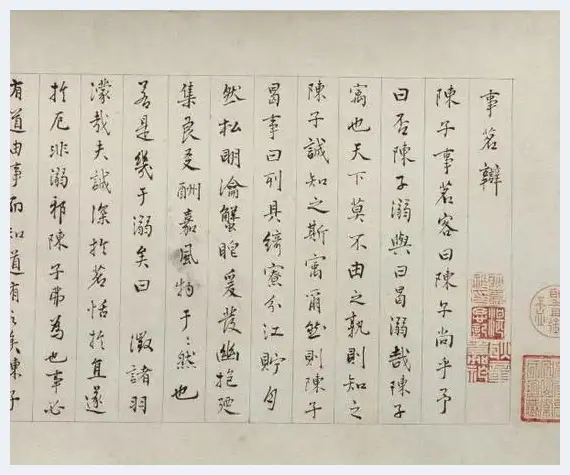 事茗辯
陳子事茗客曰陳子尚乎予
曰否陳子溺與曰曷溺哉陳子
寓也天下莫不由之孰則知之
陳子誠知之斯寓爾然則陳子
曷事曰列具綺寮分江貯月
然松瀹蟹眼爰發幽抱延
集良友酬嘉風物于于然也
若是幾于溺矣曰澂諸羽
濛哉夫誠深於茗恬於宜遂
於厄非溺邪陳子弗為也事必
有道由事而知道有之矣陳子